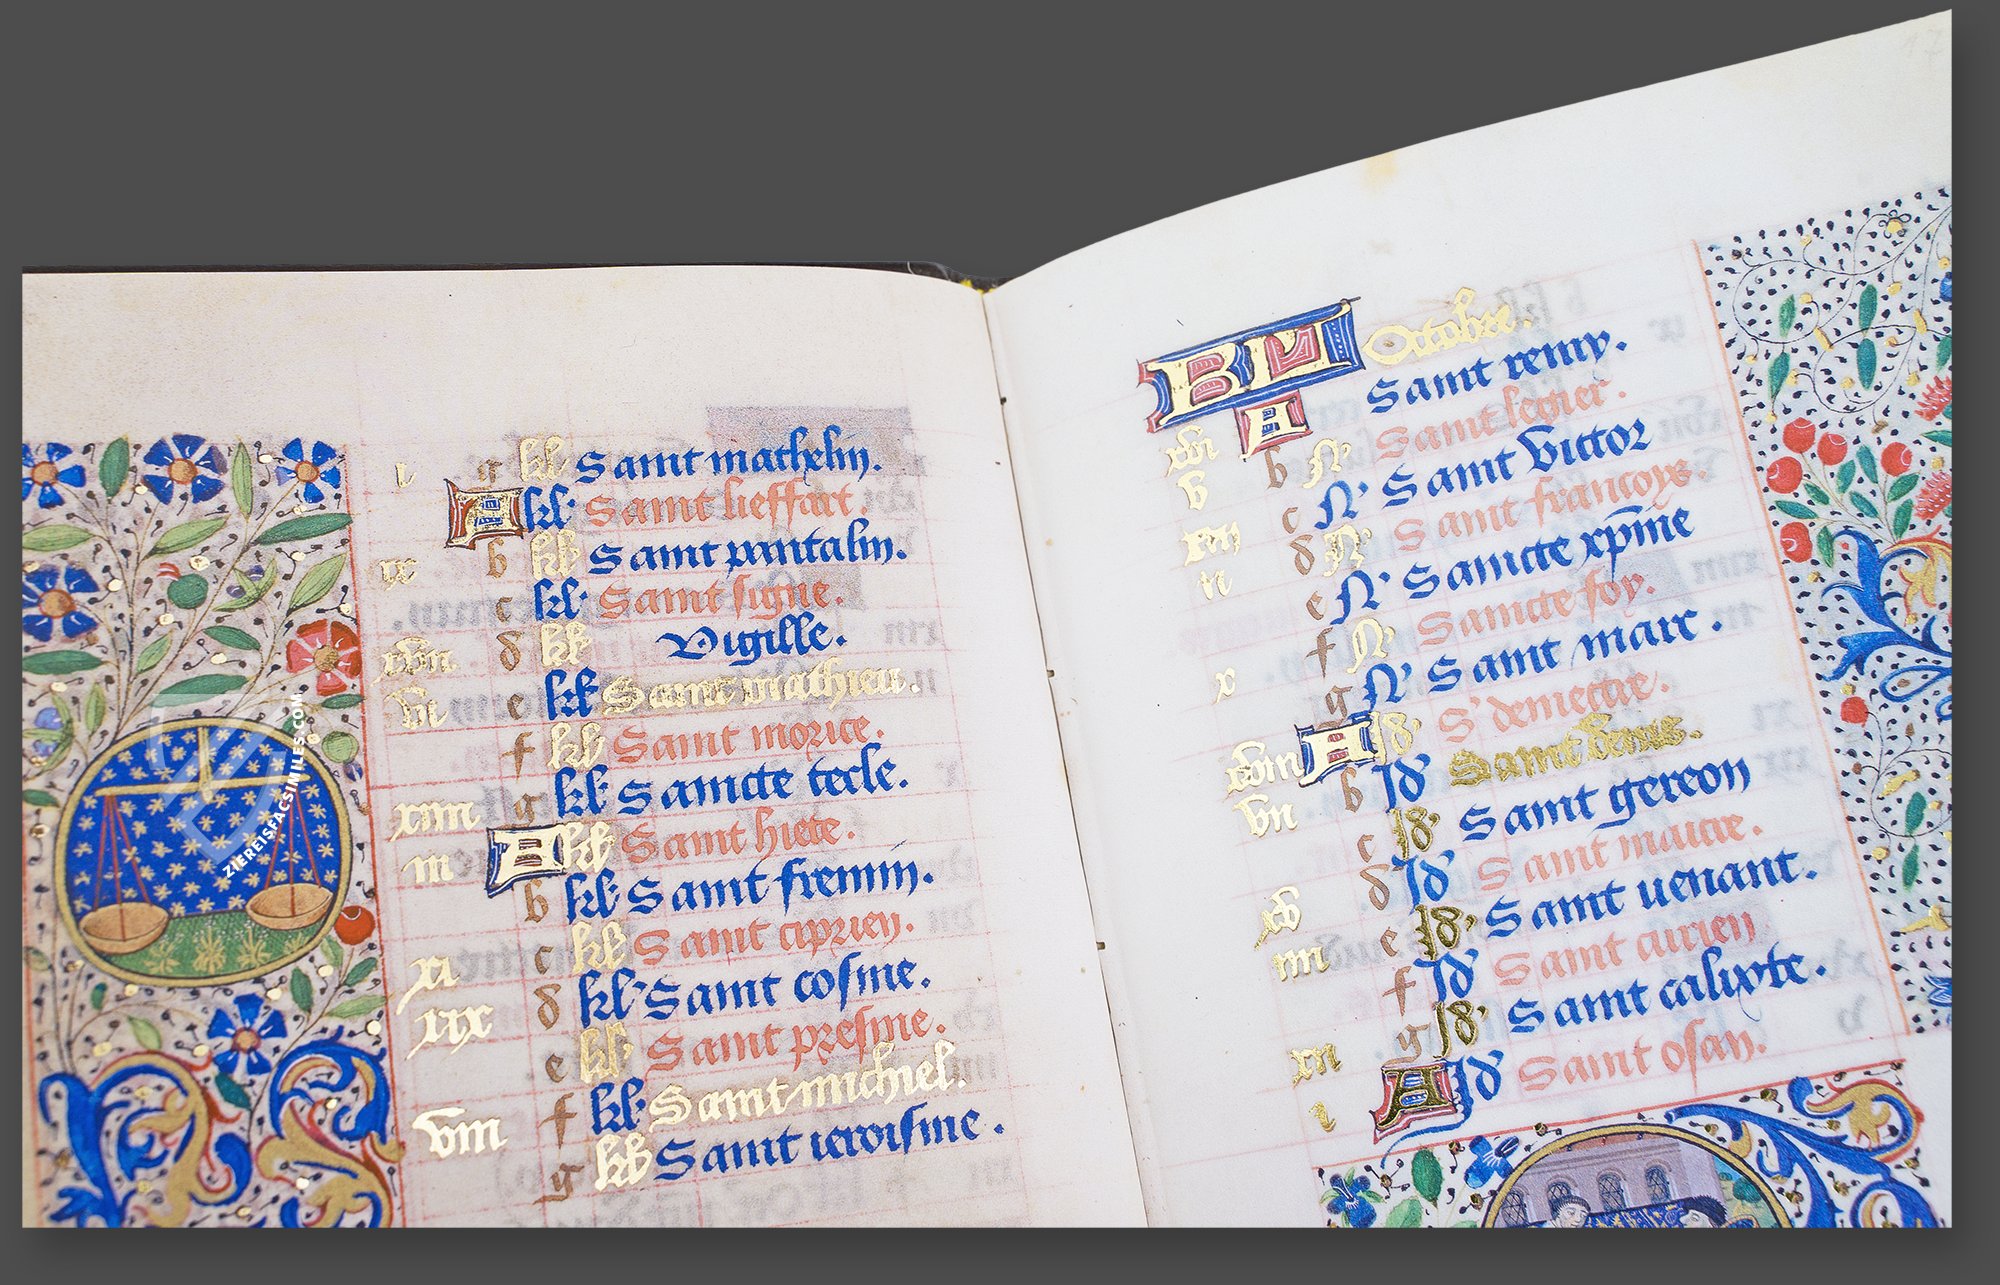 i g kl Saint mathelin.
A kl Saint lieffart.
ix b kl Saint pantalin.
c kl Saint signe.
xvii d kl Vigille.
vi e kl Saint mathieu.
f kl Saint morice.
xiiii g kl Saincte tecle.
iii A kl Saint hiete.
b kl Saint fremin.
xi c kl Saint ciprien.
xix d kl Saint cosme.
e kl Saint presme.
viii f kl Saint michiel.
g kl Saint ieroisme.
KL Octobre.
xvi A Saint remy.
v b N Saint legier.
xiii c N Saint victor
ii d N Saint francoys.
e N Saincte xp̄ine
x f N Saincte foy.
g N Saint marc.
xviii A Id S' demectre.
vii b Id Saint denis.
c Id Saint gereon
xv d Id Saint
iiii e Id Saint venant.
f Id Saint
xii g Id Saint calixte.
i A Id Saint osan.
ZIEREISFACSIMILES.COM